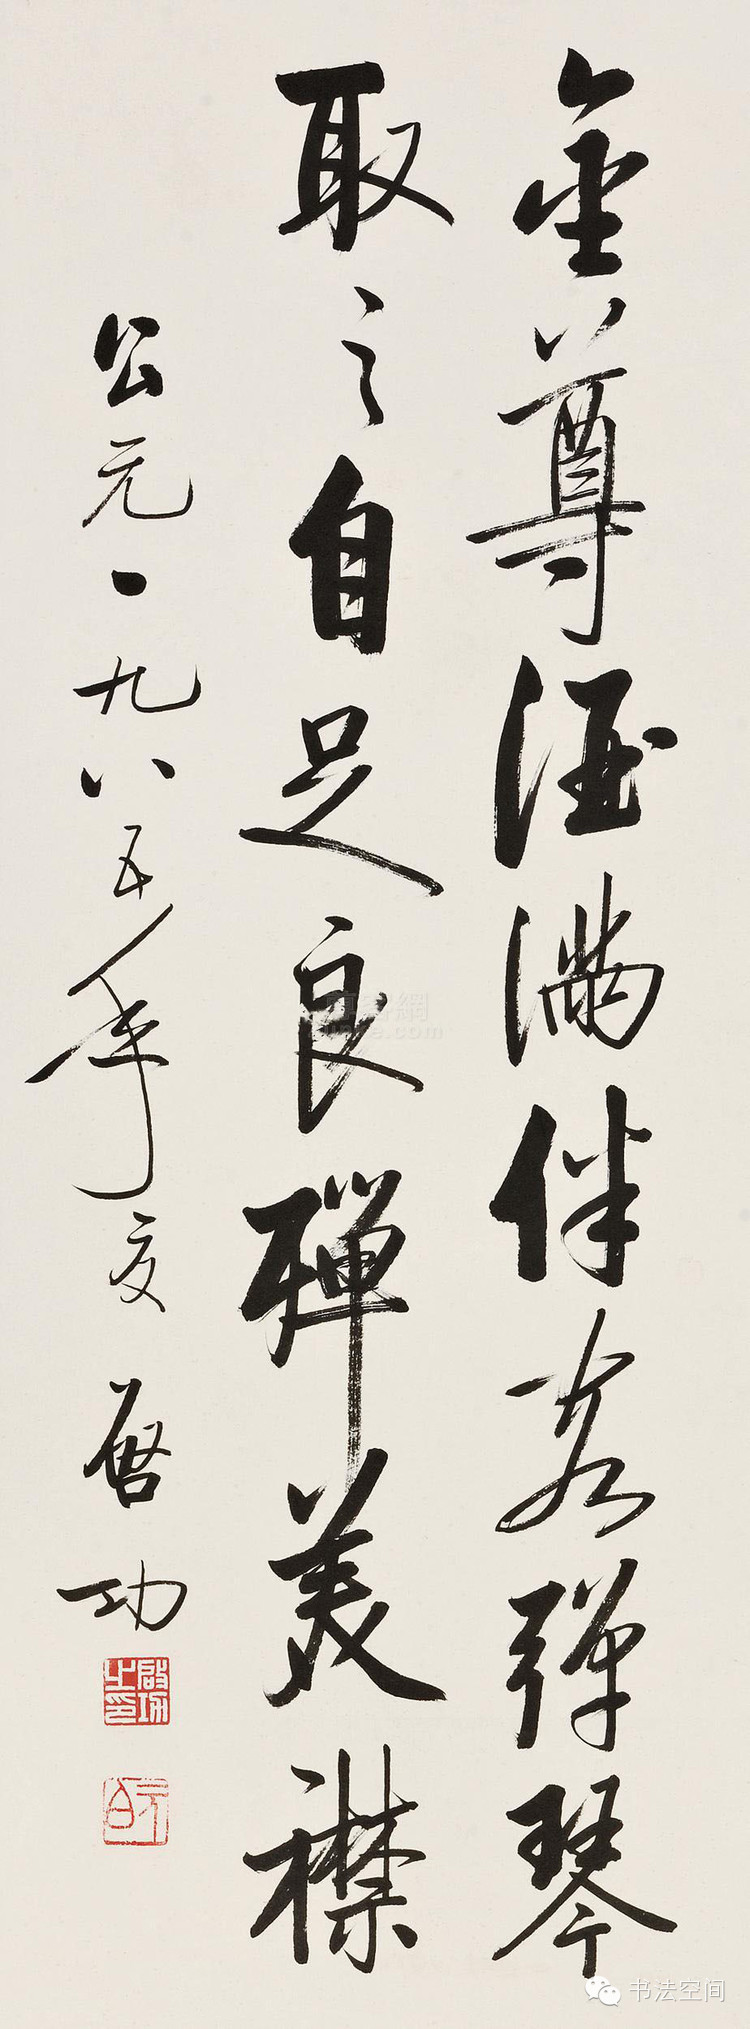 金尊酒满伴客弹琴
取之自足良殚美襟
公元一九八五年夏 启功
启功之印
元白
书法空间